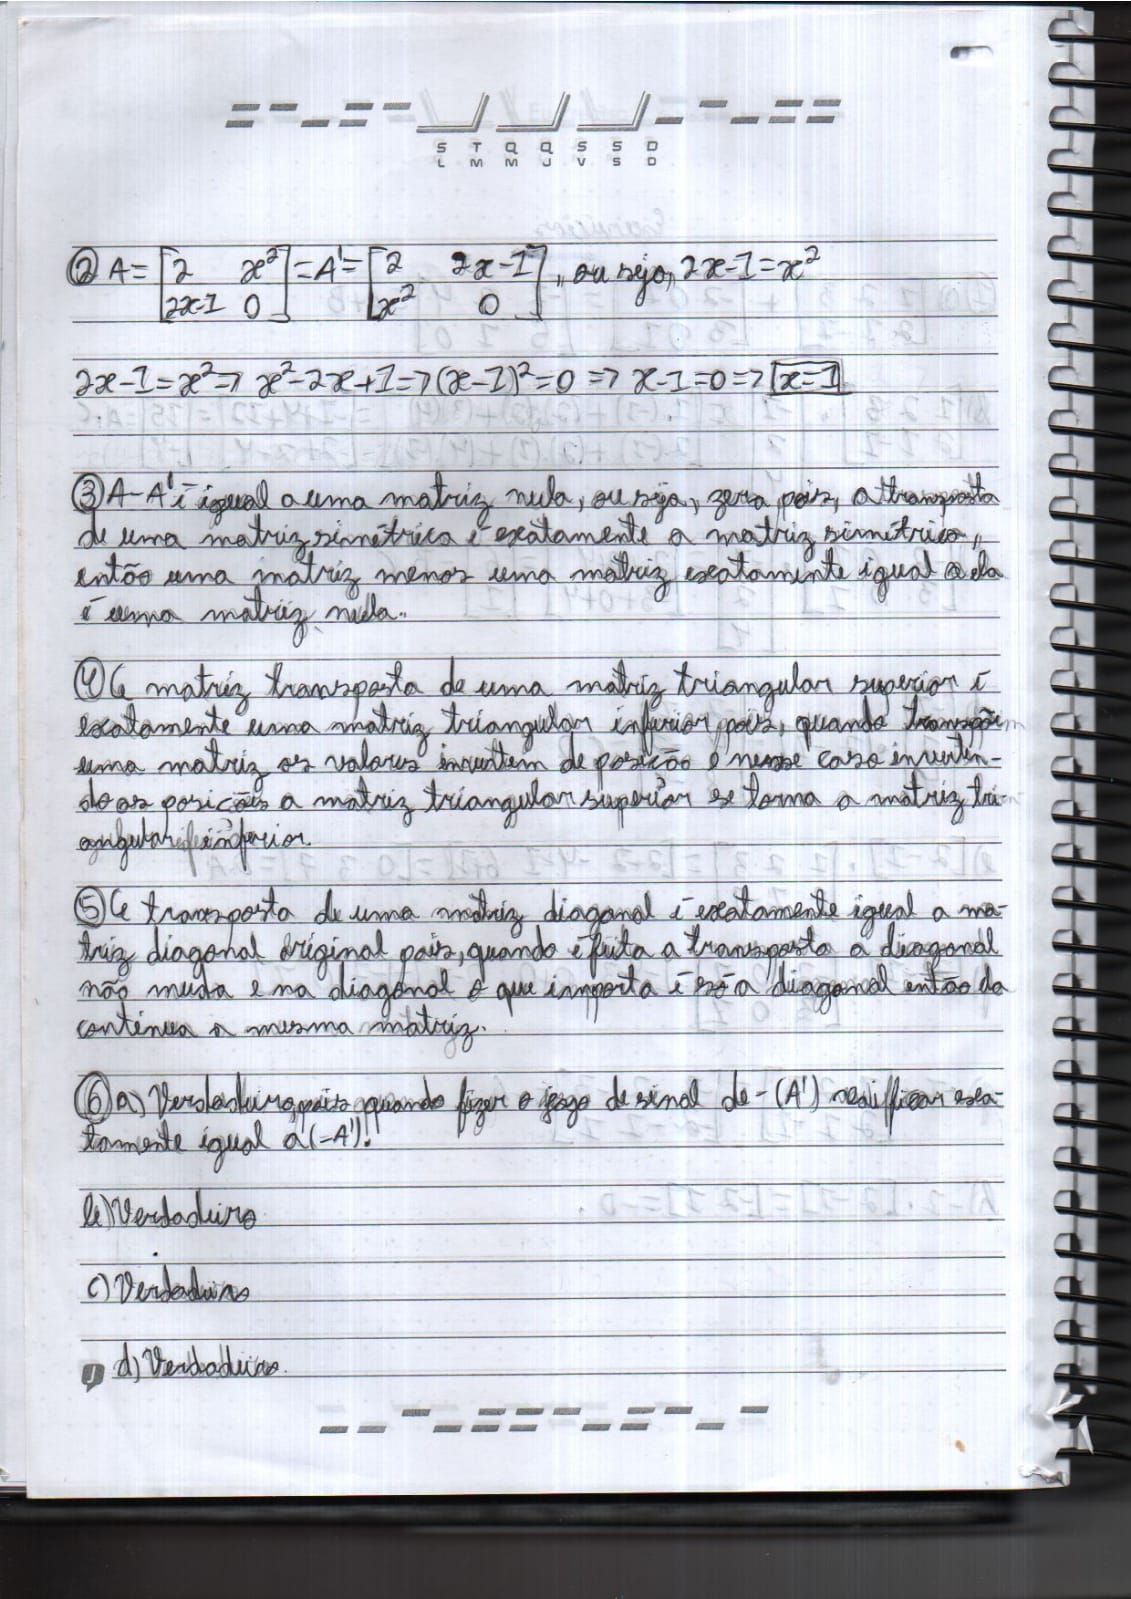 S T Q Q S S D
L M M J V S D
② A = [2 x² 2x-1 0] = A' = [2 2x-1 x² 0], ou seja, 2x-1=x²
2x-1=x² => x²-2x+1 => (x-1)²=0 => x-1=0 => x=1
③ A-A' é igual a uma matriz nula, ou seja, zero pois, a transposta
de uma matriz simétrica é exatamente a matriz simétrica,
então uma matriz menos uma matriz exatamente igual a ela
é uma matriz nula.
④ A matriz transposta de uma matriz triangular superior é
exatamente uma matriz triangular inferior pois, quando transpõem
uma matriz os valores invertem de posição e nesse caso inverten-
do as posições a matriz triangular superior se torna a matriz tri-
angular inferior.
⑤ A transposta de uma matriz diagonal é exatamente igual a ma-
triz diagonal original pois, quando é feita a transposta a diagonal
não muda e na diagonal o que importa é só a diagonal então da
continua a mesma matriz.
⑥ a) Verdadeiro, pois quando fizer o jogo de sinal de -(A') ficar exa-
tamente igual a (-A')!
b) Verdadeiro
c) Verdadeiro
d) Verdadeiro.